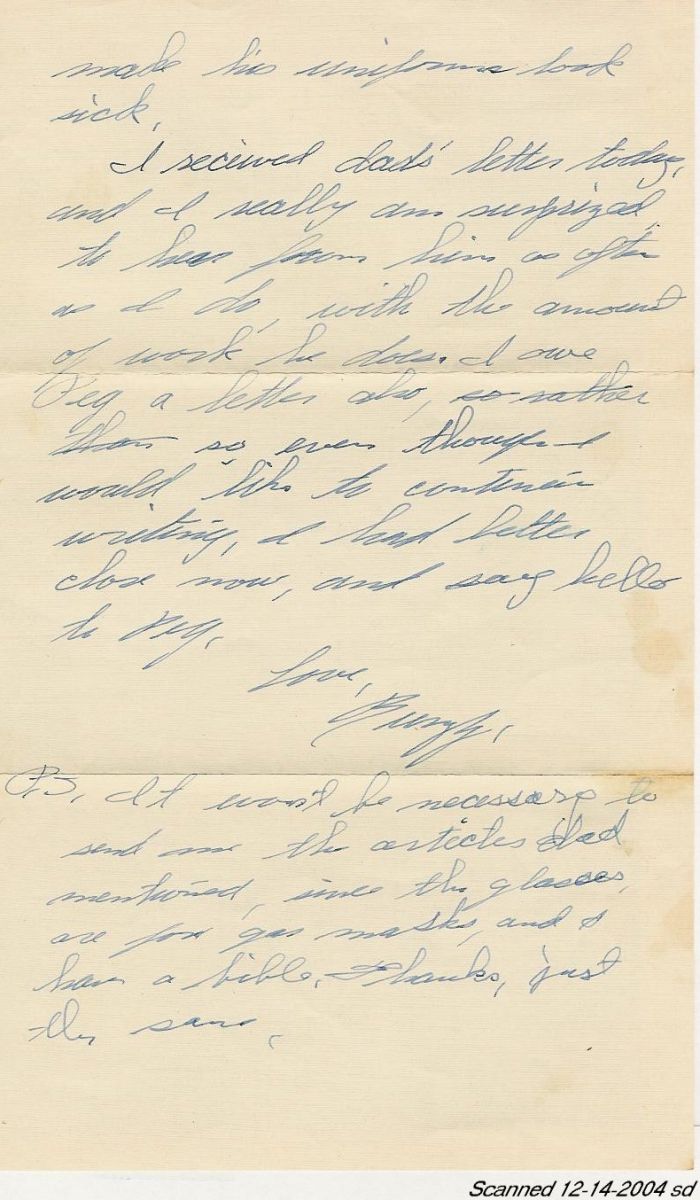 made his uniforms look
sick.
I received dad's letter today,
and I really am surprized
to hear from him as often
as I do, with the amount
of work he does. I owe
Peg a letter also, so rather
than so even though I
would like to continue
writing, I had better
close now, and say hello
to Peg.
Love,
P.S. It won't be necessary to
send me the articles dad
mentioned, since the glasses
are for gas masks, and I
have a bible. Thanks, just
the same.
Scanned 12-14-2004 sd